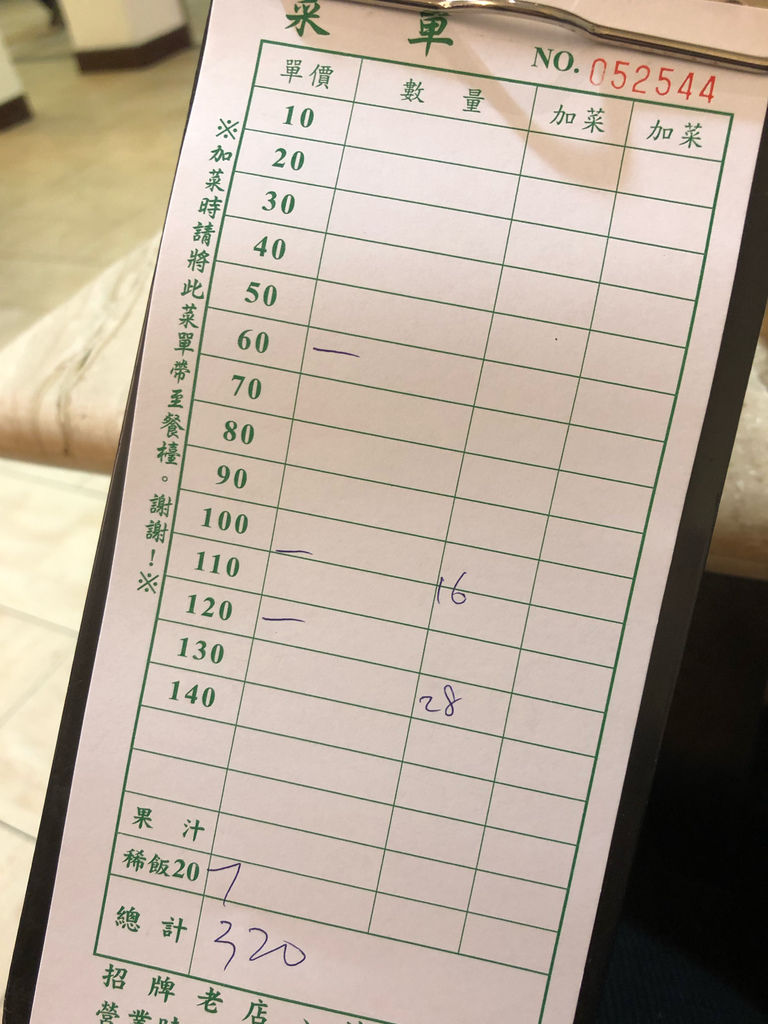 菜 單
NO. 052544
單價 數量 加菜 加菜
10
20
30
40
50
60 —
70
80
90
100 —
110 16
120 —
130 28
140
果汁
稀飯20 7
總計 320
※加菜時請將此菜單帶至餐檯。謝謝!※
招牌老店、
營業時